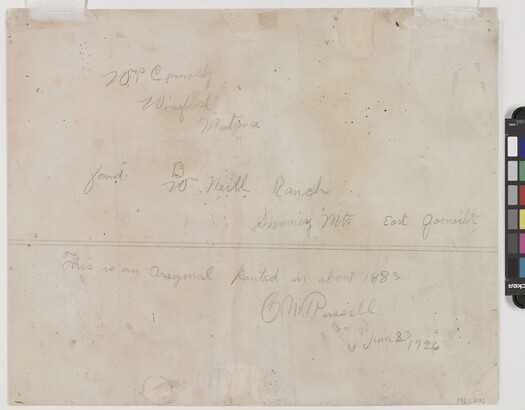 Wm Connolly
Winifred
Montana
found. Wm Neill Ranch
Snowey Mts East Garneill
This is an Original Painted in about 1883
C M Russell
June 23 1926